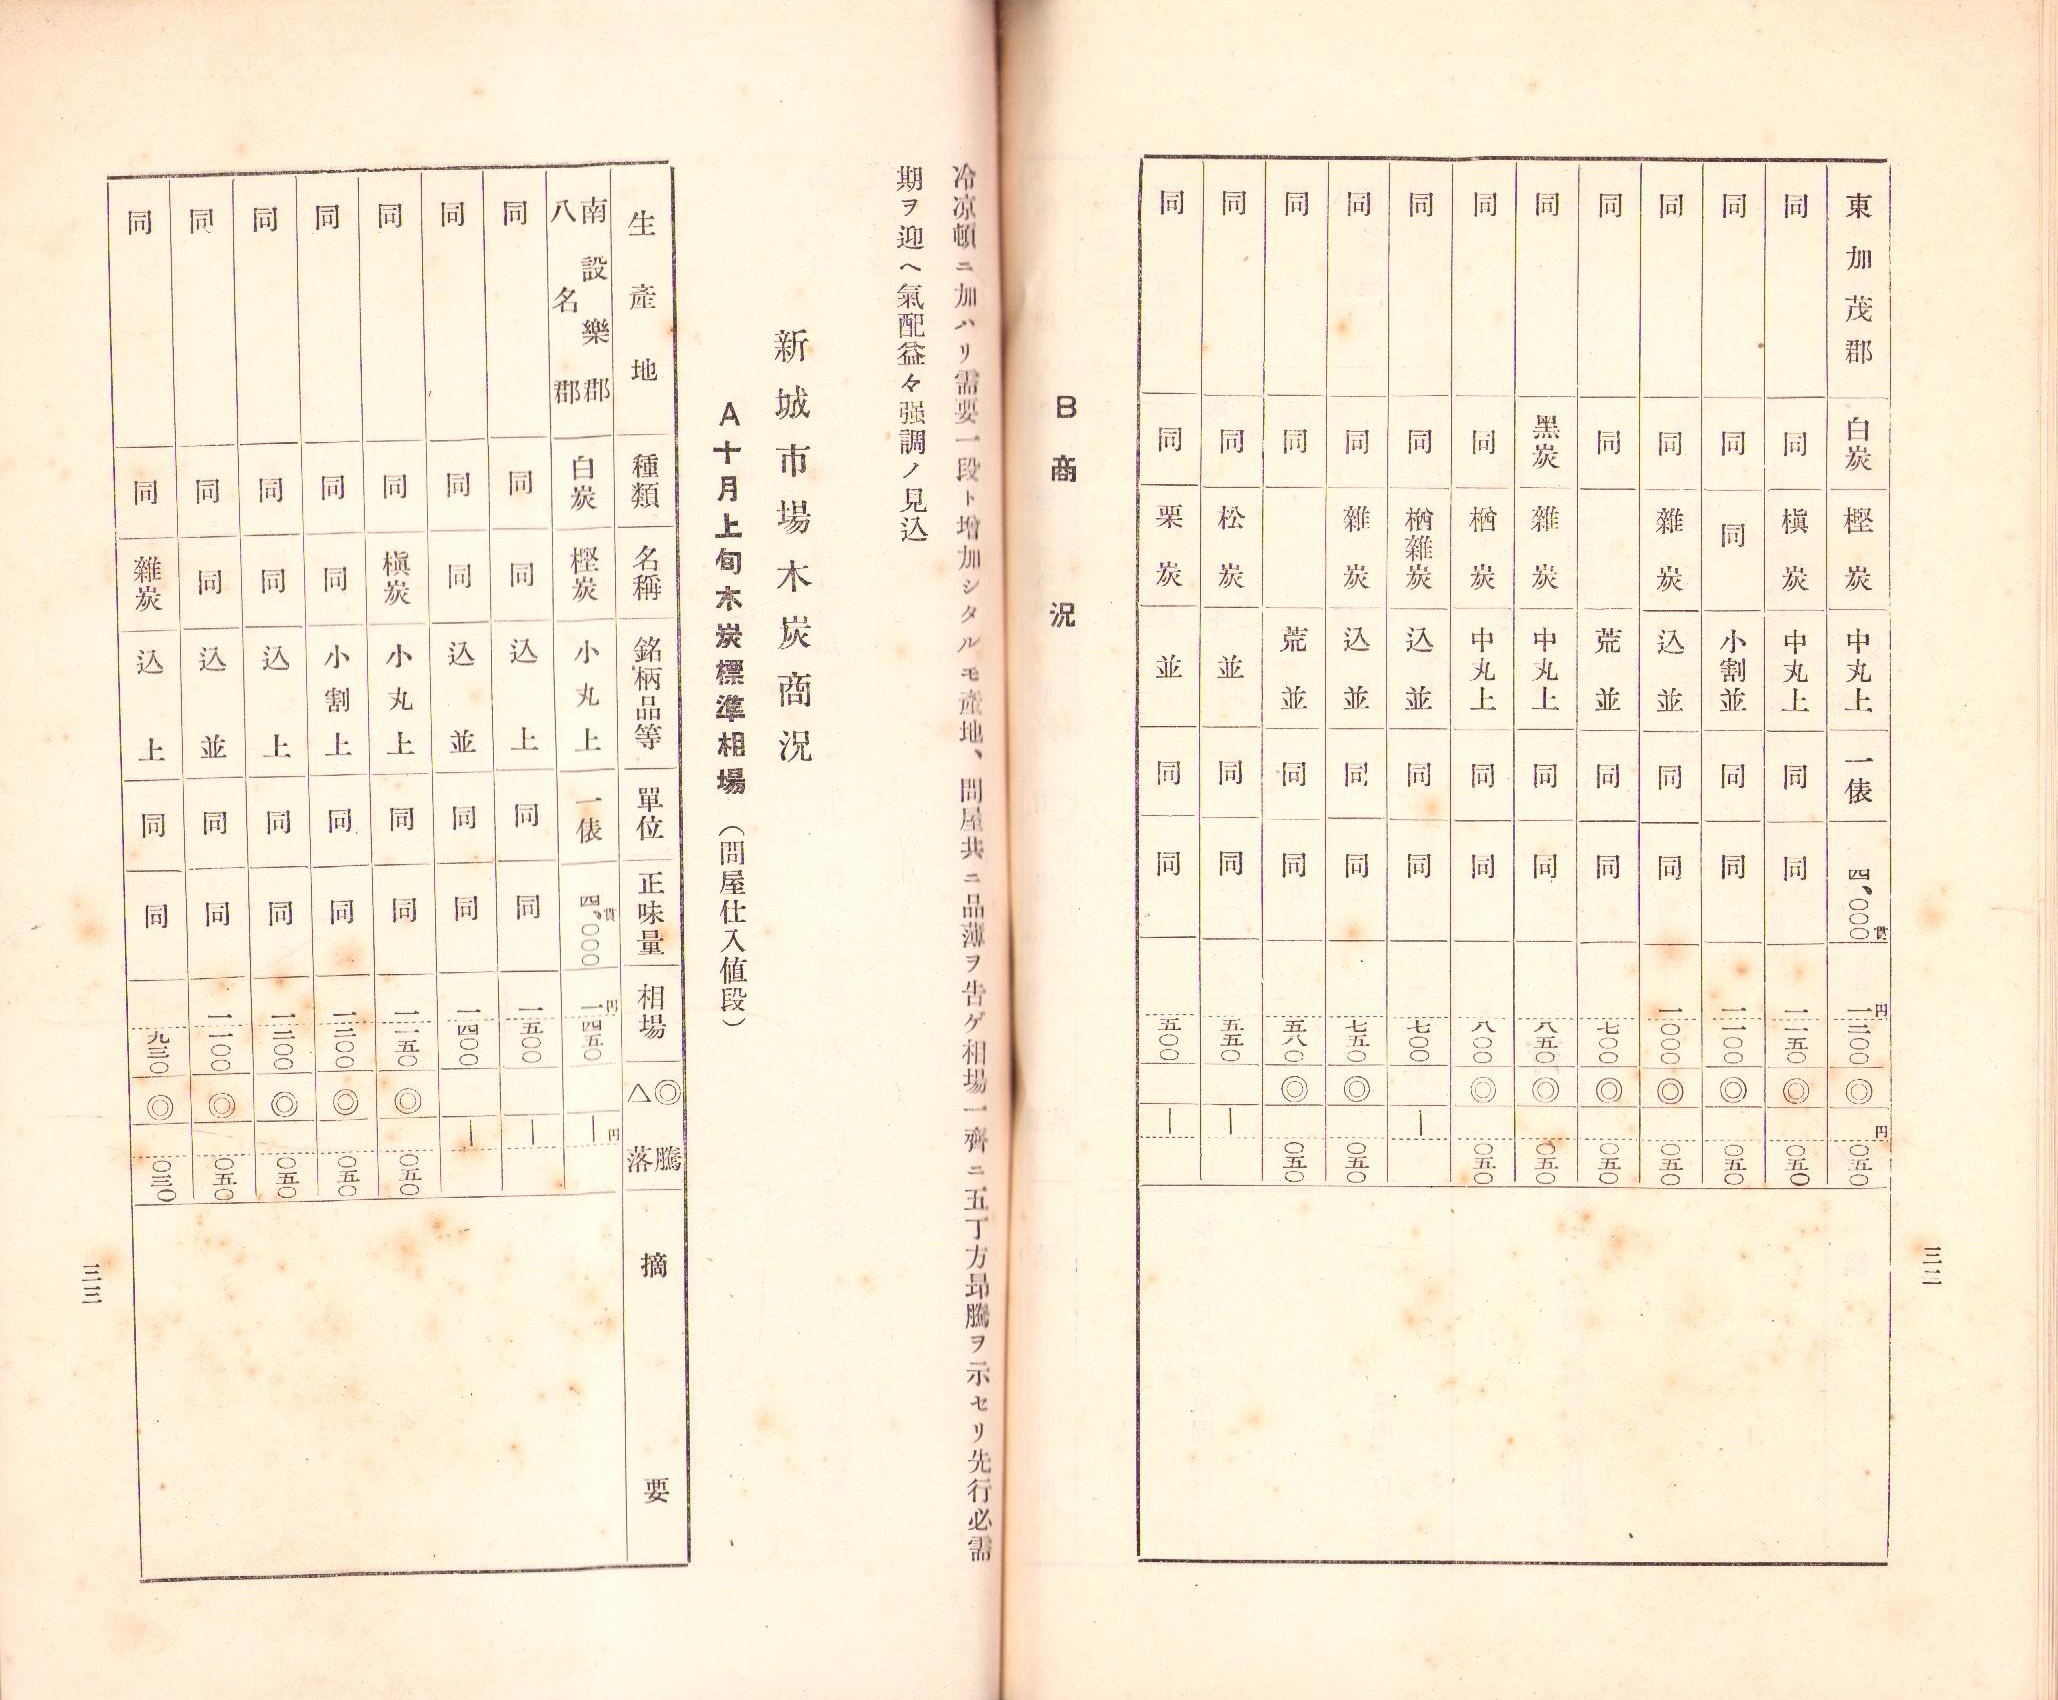 東加茂郡 白炭 樫炭 中丸上 一俵 四、〇〇〇貫 一円二〇〇 ◎ 円〇五〇
同 同 槇炭 中丸上 同 同 一一五〇 ◎ 〇五〇
同 同 同 小割並 同 同 一一〇〇 ◎ 〇五〇
同 同 雜炭 込並 同 同 一〇〇〇 ◎ 〇五〇
同 同 荒並 同 同 七〇〇 ◎ 〇五〇
同 黑炭 雜炭 中丸上 同 同 八五〇 ◎ 〇五〇
同 同 楢炭 中丸上 同 同 八〇〇 ◎ 〇五〇
同 同 楢雜炭 込並 同 同 七〇〇 ―
同 同 雜炭 込並 同 同 七五〇 ◎ 〇五〇
同 同 荒並 同 同 五八〇 ◎ 〇五〇
同 同 松炭 並 同 同 五五〇 ―
同 同 栗炭 並 同 同 五〇〇 ―
三二
B 商況
冷凉頓ニ加ハリ需要一段ト增加シタルモ產地、問屋共ニ品薄ヲ告ゲ相場一齊ニ五丁方昻騰ヲ示セリ先行必需
期ヲ迎ヘ氣配益々强調ノ見込
新城市場木炭商況
A 十月上旬木炭標準相場（問屋仕入値段）
生產地 種類 名稱 銘柄品等 單位 正味量 相場 ◎騰 △落 摘要
南設樂郡 八名郡 白炭 樫炭 小丸上 一俵 四、〇〇〇貫 一円四五〇 円―
同 同 同 込上 同 同 一五〇〇 ―
同 同 同 込並 同 同 一四〇〇 ―
同 同 槇炭 小丸上 同 同 一一五〇 ◎ 〇五〇
同 同 同 小割上 同 同 一二〇〇 ◎ 〇五〇
同 同 同 込上 同 同 一二〇〇 ◎ 〇五〇
同 同 同 込並 同 同 一一〇〇 ◎ 〇五〇
同 同 雜炭 込上 同 同 九三〇 ◎ 〇三〇
三三